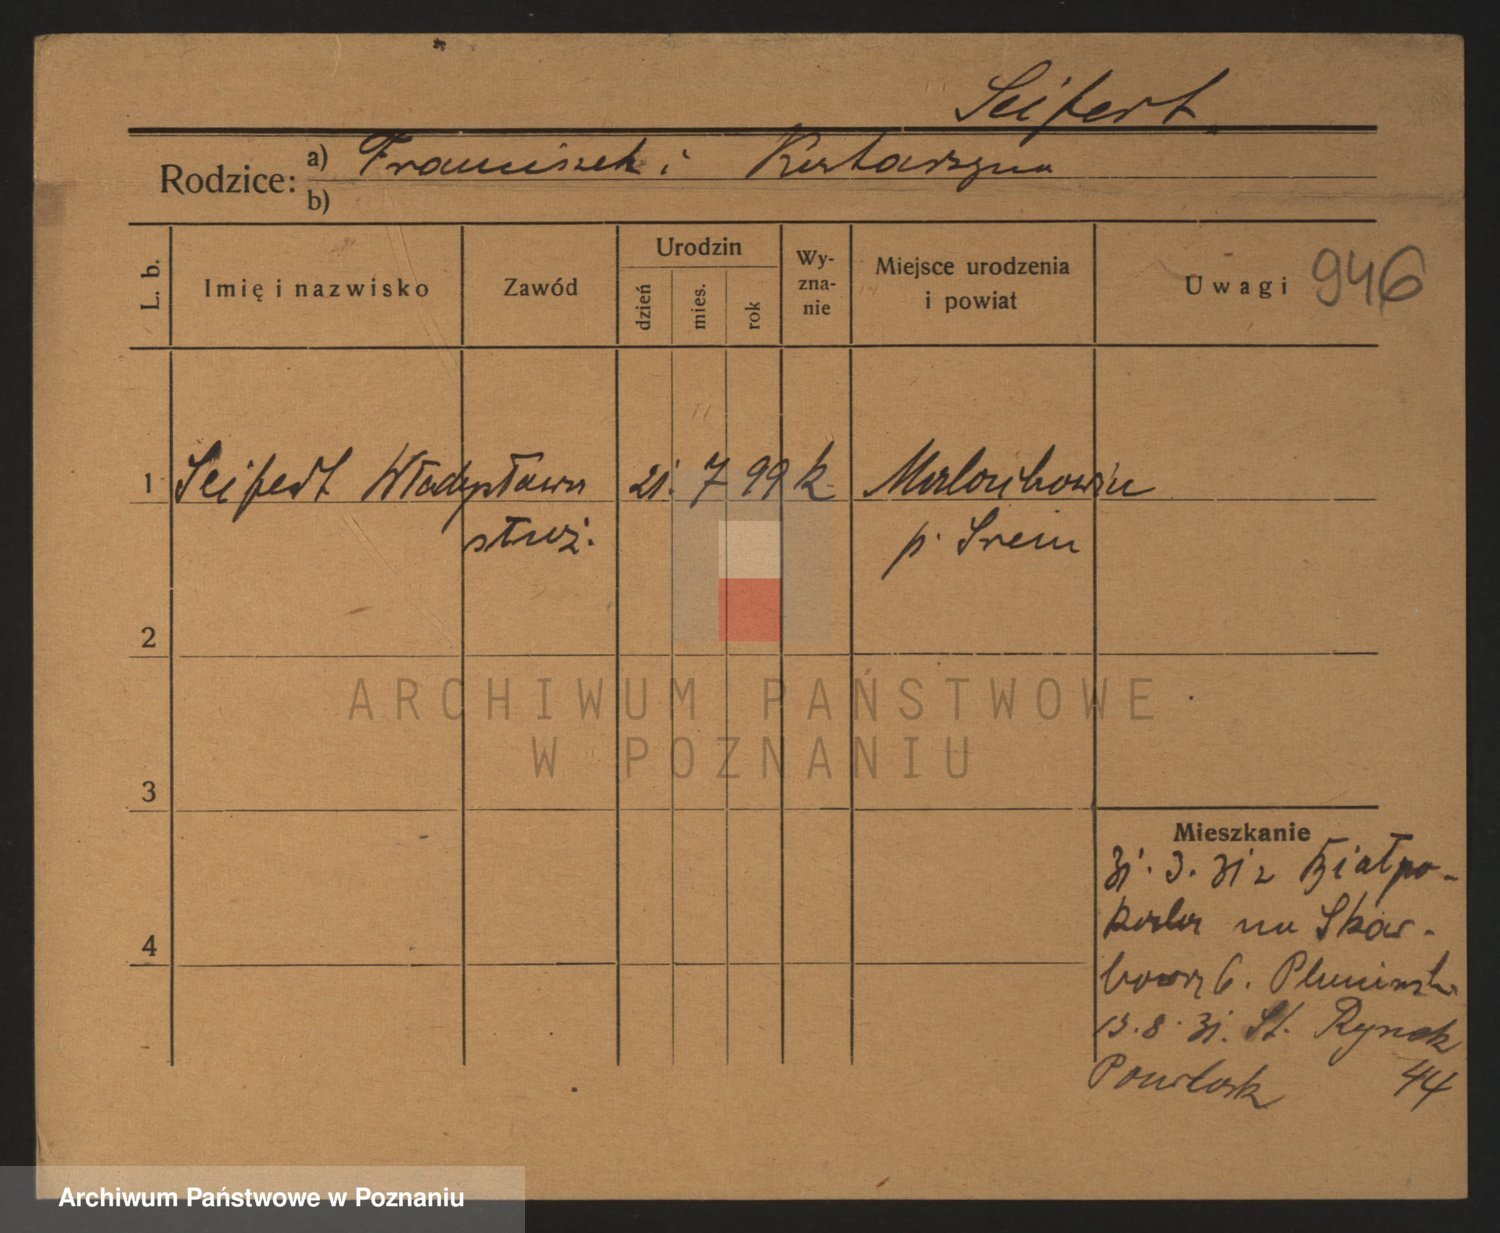 Seifert
Rodzice: a) Franciszek i Katarzyna
b)
L. b. Imię i nazwisko Zawód Urodzin dzień mies. rok Wy-zna-nie Miejsce urodzenia i powiat Uwagi 946
1 Seifert Władysława 21. 7 99 k
służ. p. Srem
2
ARCHIWUM PAŃSTWOWE
W POZNANIU
3
Mieszkanie
31. 3. 31 z Białpo-
na Skar-
bową 6.
13. 8. 31. St. Rynek
44
4
Archiwum Państwowe w Poznaniu